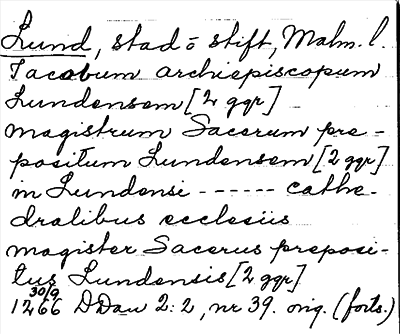 Lund, stad o stift, Malm. l.
Iacobum archiepiscopum
Lundensem [2 ggr]
magistrum Sacerum pre-
positum Lundensem [2 ggr]
in Lundensi ------ cathe-
dralibus ecclesiis
magister Sacerus preposi-
tus Lundensis [2 ggr]
30/9 1266 DDan 2:2, nr 39. orig. (forts.)